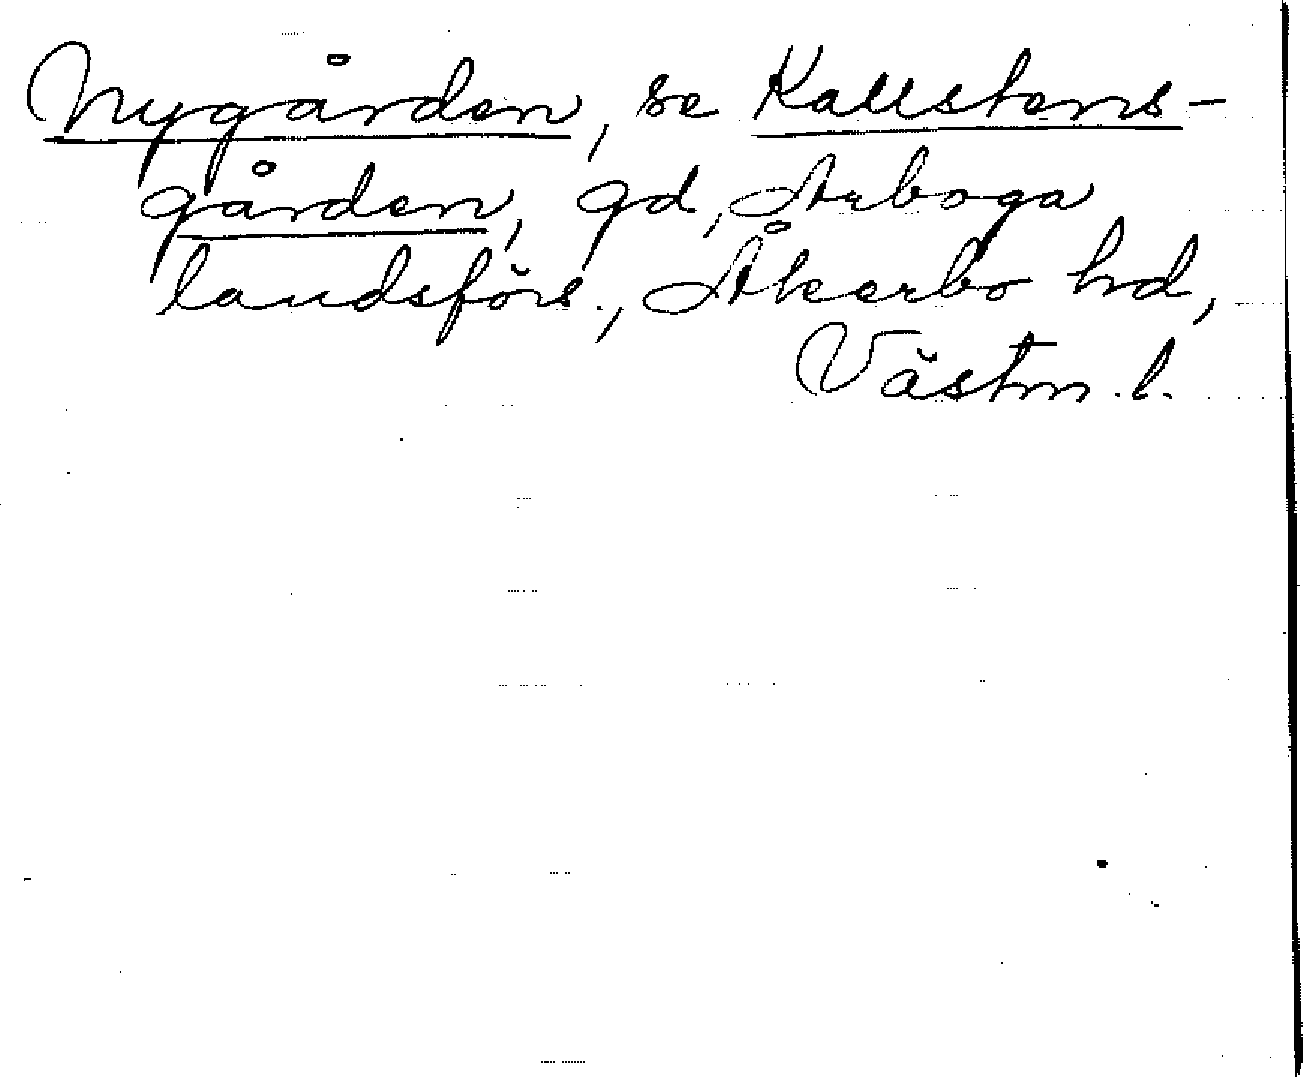 Nygården, se Kallstens-
gården, gd, Arboga
landsförs., Åkerbo hd,
Västm. l.